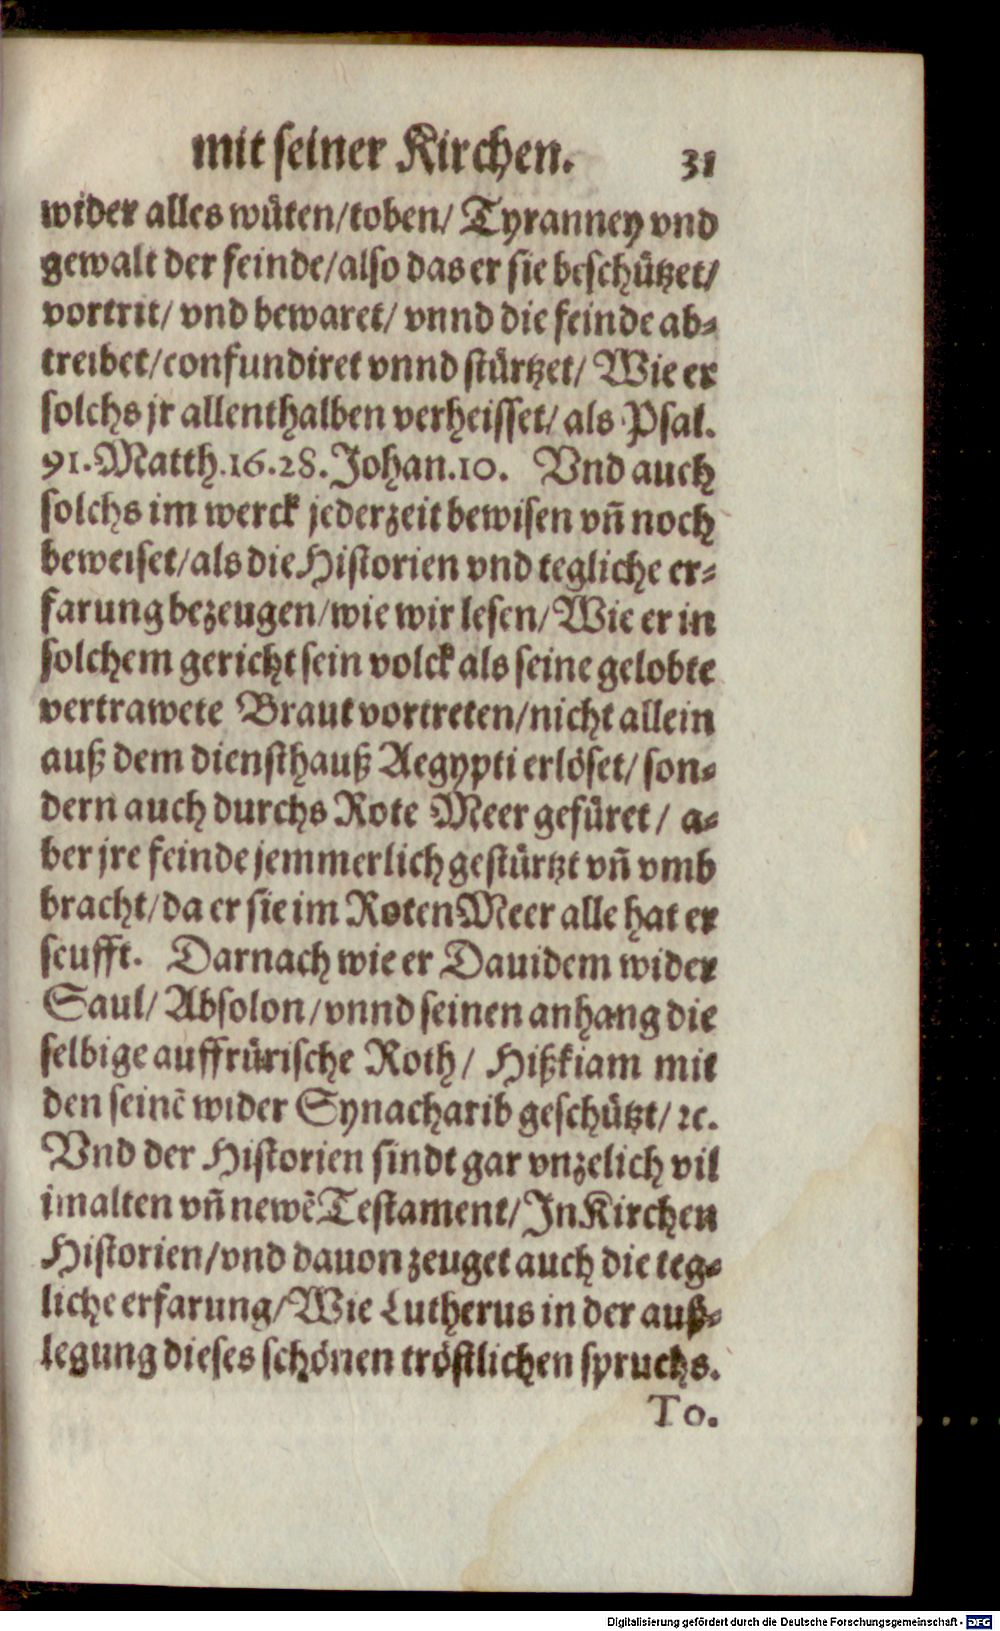 mit seiner Kirchen. 31
wider alles wüten/toben/ Tyranney vnd
gewalt der feinde/also das er sie beschützet/
vortrit/ vnd bewaret/ vnnd die feinde ab-
treibet/confundiret vnnd stürtzet/ Wie er
solchs jr allenthalben verheisset/ als Psal.
91. Matth.16.28. Johan.10. Vnd auch
solchs im werck jederzeit bewisen vñ noch
beweiset/als die Historien vnd tegliche er-
farung bezeugen/wie wir lesen/ Wie er in
solchem gericht sein volck als seine gelobte
vertrawete Braut vortreten/nicht allein
auß dem diensthauß Aegypti erlöset/ son-
dern auch durchs Rote Meer gefüret/ a-
ber jre feinde jemmerlich gestürtzt vñ vmb
bracht/da er sie im Roten Meer alle hat er
seufft. Darnach wie er Dauidem wider
Saul/ Absolon/vnnd seinen anhang die
selbige auffrürische Roth/ Hißkiam mit
den seinẽ wider Synacharib geschützt/ ꝛc.
Vnd der Historien sindt gar vnzelich vil
im alten vñ newẽ Testament/ In Kirchen
Historien/vnd dauon zeuget auch die teg-
liche erfarung/ Wie Lutherus in der auß-
legung dieses schönen tröstlichen spruchs.
To.
Digitalisierung gefördert durch die Deutsche Forschungsgemeinschaft - DFG